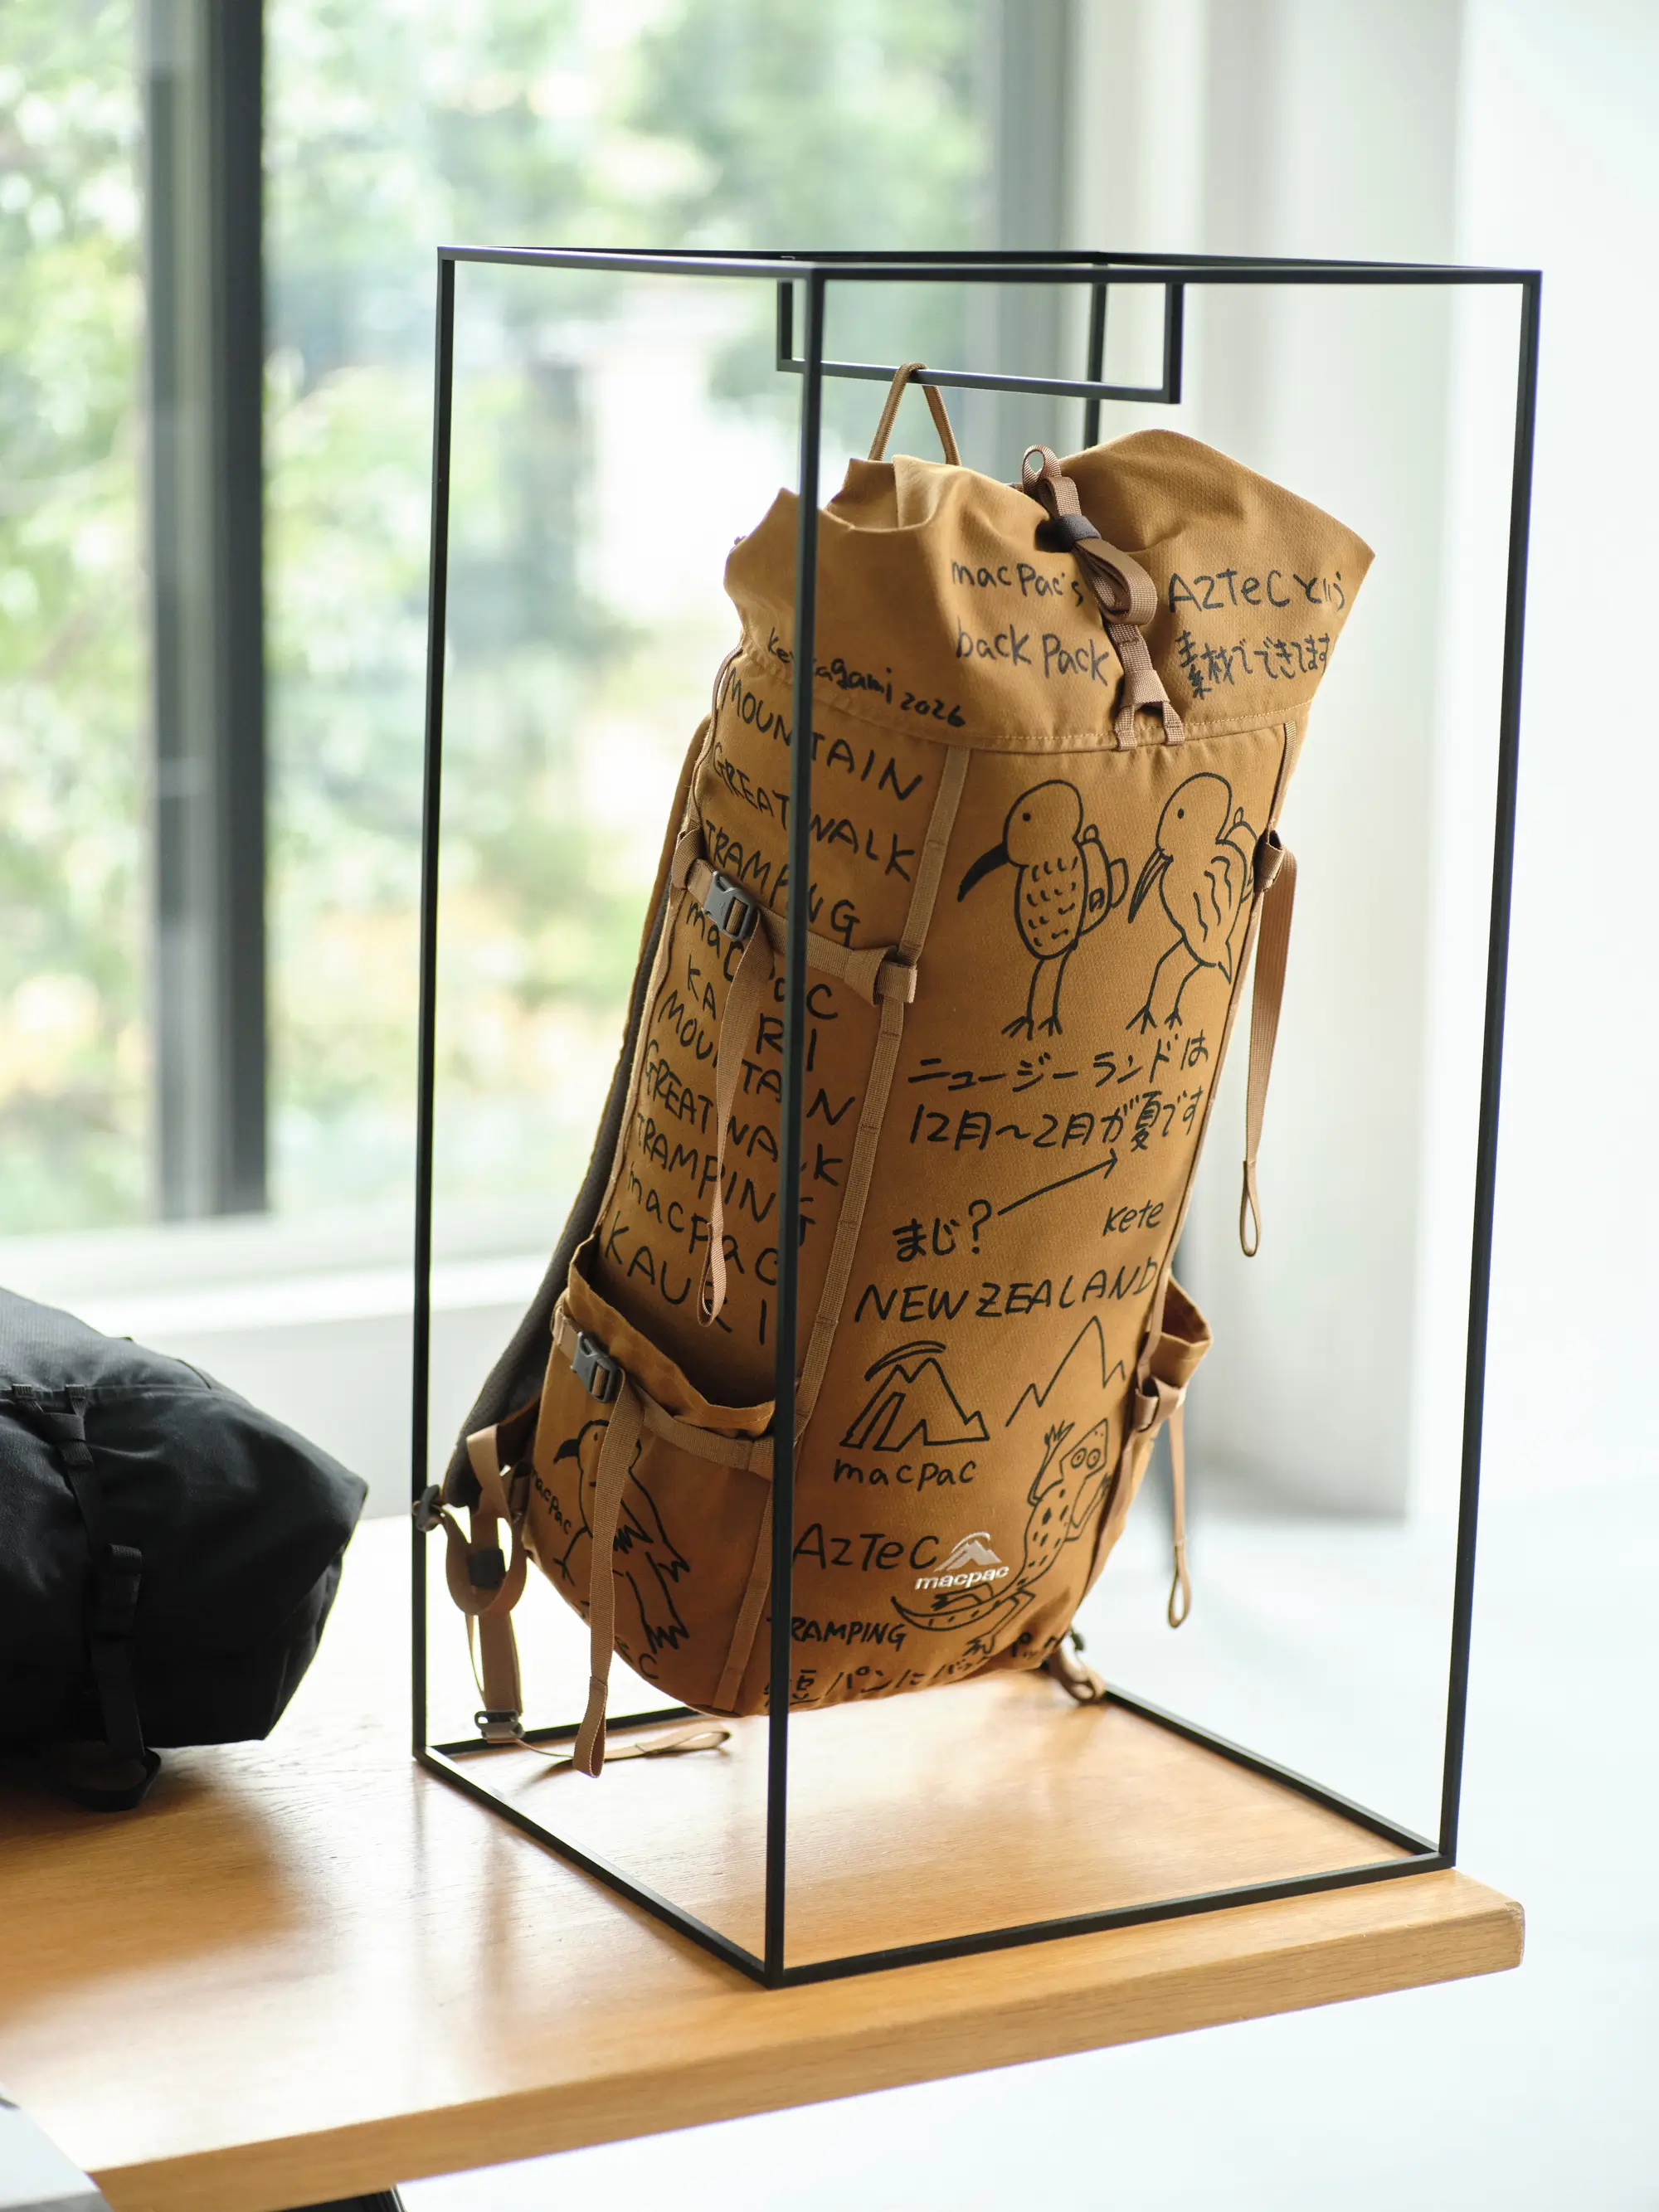 macpac's
back pack
AZTECという
素材でできてます
agami 2026
MOUNTAIN
GREAT WALK
TRAMPING
macpac
KAURI
MOUNTAIN
GREAT WALK
TRAMPING
macpac
KAURI
ニュージーランドは
12月〜2月が夏です
まじ?
kete
NEW ZEALAND
macpac
AZTEC
macpac
TRAMPING
macpac